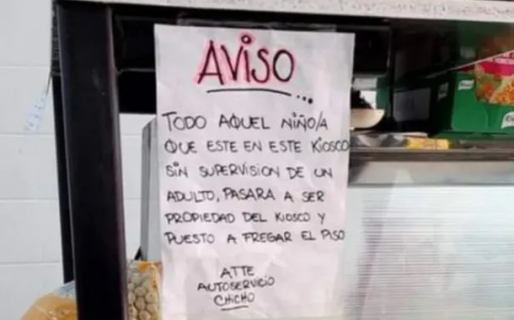 AVISO
...
TODO AQUEL NIÑO/A
QUE ESTE EN ESTE KIOSCO
SIN SUPERVISION DE UN
ADULTO, PASARA A SER
PROPIEDAD DEL KIOSCO Y
PUESTO A FREGAR EL PISO
ATTE
AUTOSERVICIO
CHICHO